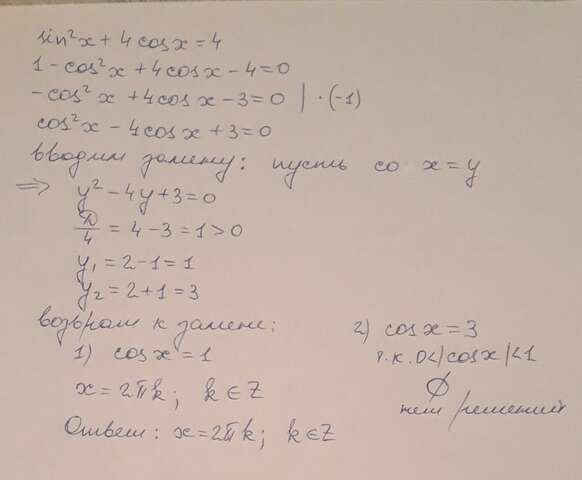 sin²x + 4 cos x = 4
1 - cos²x + 4cos x - 4 = 0
-cos²x + 4cos x - 3 = 0 | · (-1)
cos²x - 4cos x + 3 = 0
вводим замену: пусть со x = y
⇒ y² - 4y + 3 = 0
D/4 = 4 - 3 = 1 > 0
y₁ = 2 - 1 = 1
y₂ = 2 + 1 = 3
возврат к замене:
1) cos x = 1
x = 2πk; k ∈ Z
2) cos x = 3
т.к. 0<|cos x|<1
∅
нет решений
Ответ: x = 2πk; k ∈ Z